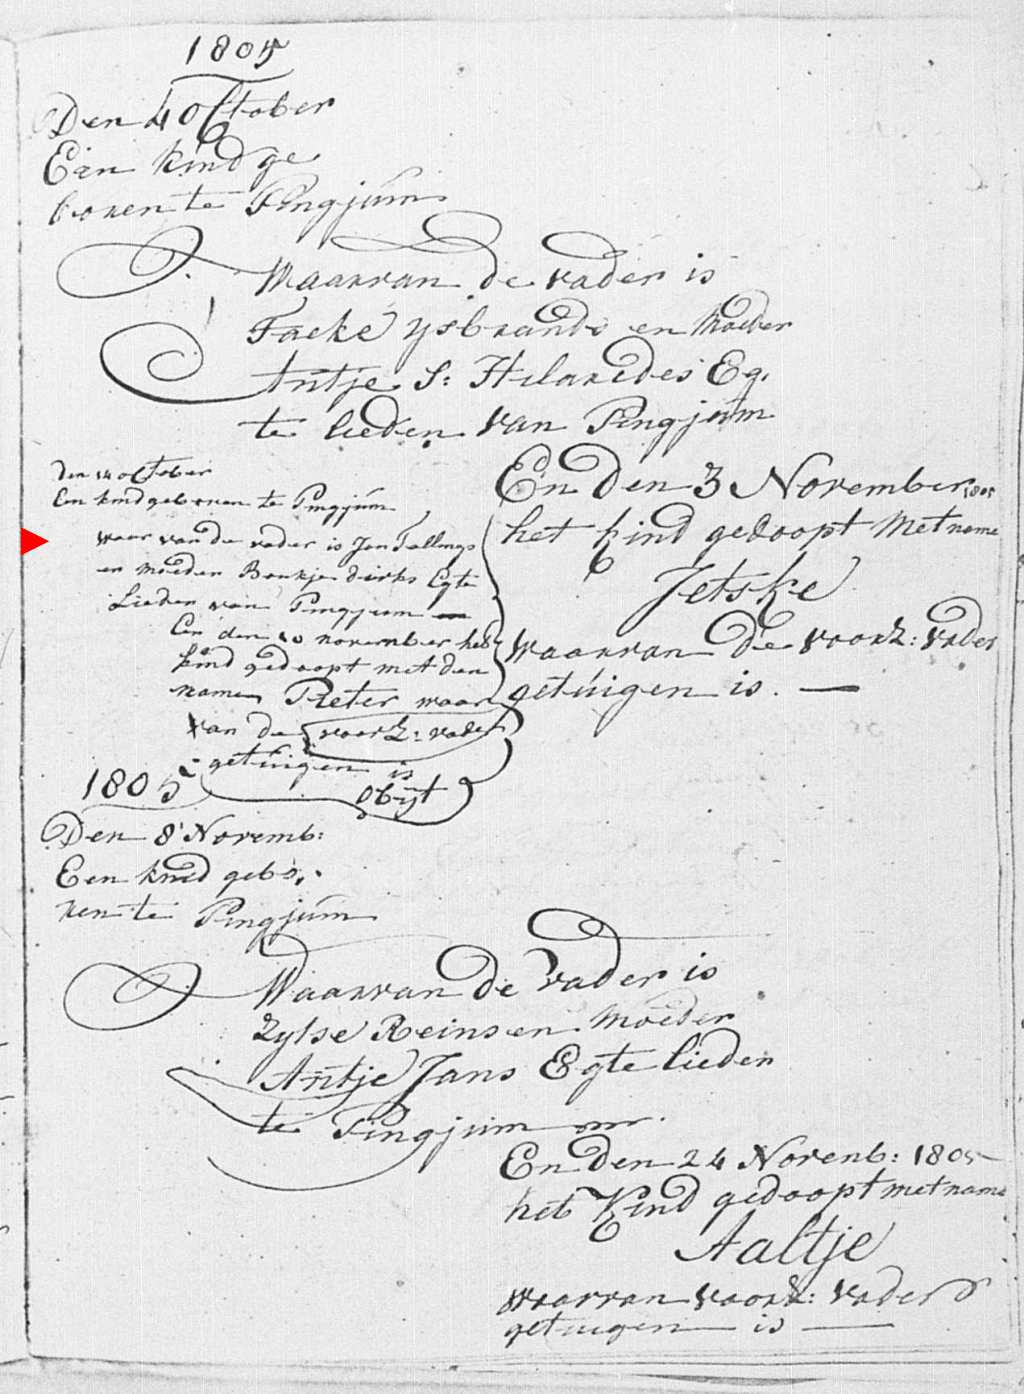 1805
Den 4 October
Een kind ge
boren te Pingjum
Waarvan de vader is
Facke ysbrands en Moeder
Antje S: Hilaredes Eg,
te lieden van Pingjum
En den 3 November 1805
het kind gedoopt Met name
Jetske
Waarvan de voorz: vader
getuigen is. —
Den 14 October
Een kind geboren te Pingjum
waar van de vader is Jan Tallings
en moeder Baukje dirks Egte
Lieden van Pingjum —
En den 10 november het
kind gedoopt met den
name Pieter waar
van de voorz: vader
getuigen is
obijt
1805
Den 8 Novemb:
Een kind gebo,
ren te Pingjum
Waarvan de vader is
Zytse Reins en Moeder
Antje Jans Egte lieden
te Pingjum
En den 24 Novemb: 1805
het Kind gedoopt met name
Aaltje
Waarvan voorz: vader
getuigen is —